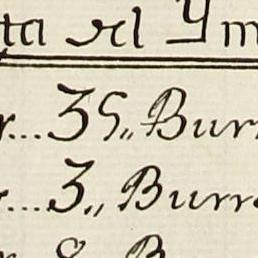 ta el Ym
r...35,, Burr
...3,, Burr